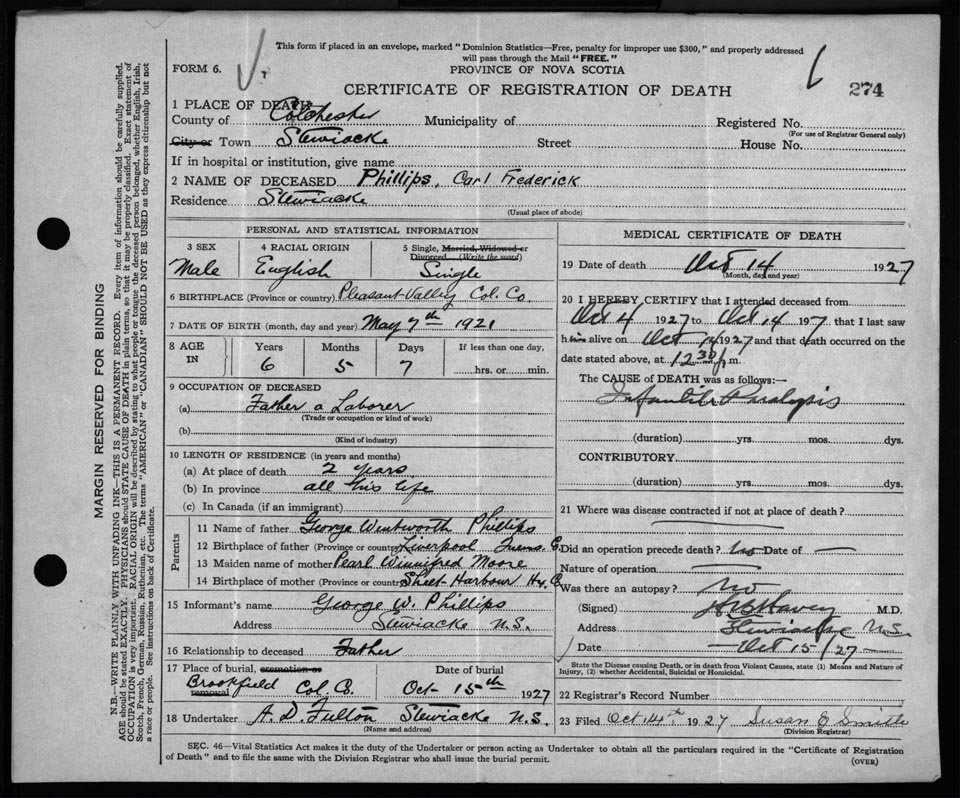 This form if placed in an envelope, marked "Dominion Statistics—Free, penalty for improper use $300," and properly addressed
will pass through the Mail "FREE."
FORM 6.
PROVINCE OF NOVA SCOTIA
CERTIFICATE OF REGISTRATION OF DEATH
274
1 PLACE OF DEATH
County of Colchester Municipality of Registered No.
(For use of Registrar General only)
City or Town Stewiacke Street House No.
If in hospital or institution, give name
2 NAME OF DECEASED Phillips, Carl Frederick
Residence Stewiacke
(Usual place of abode)
PERSONAL AND STATISTICAL INFORMATION
3 SEX 4 RACIAL ORIGIN 5 Single, Married, Widowed or
Divorced (Write the word)
Male English Single
6 BIRTHPLACE (Province or country) Pleasant Valley Col. Co.
7 DATE OF BIRTH (month, day and year) May 7th 1921
8 AGE IN Years Months Days If less than one day,
6 5 7 hrs. or min.
9 OCCUPATION OF DECEASED
(a) Father a Laborer
(Trade or occupation or kind of work)
(b)
(Kind of industry)
10 LENGTH OF RESIDENCE (in years and months)
(a) At place of death 2 years
(b) In province all his life
(c) In Canada (if an immigrant)
Parents
11 Name of father George Wentworth Phillips
12 Birthplace of father (Province or country) Liverpool Queens C.
13 Maiden name of mother Pearl Winnifred Moore
14 Birthplace of mother (Province or country) Sheet Harbour Hx. C.
15 Informant's name George W. Phillips
Address Stewiacke N.S.
16 Relationship to deceased Father
17 Place of burial, cremation or removal Date of burial
Brookfield Col. C. Oct- 15th 1927
18 Undertaker A. D. Fulton Stewiacke N.S.
(Name and address)
MEDICAL CERTIFICATION OF DEATH
19 Date of death Oct 14 1927
(Month, day and year)
20 I HEREBY CERTIFY that I attended deceased from
Oct 4 1927 to Oct 14 197 that I last saw
him alive on Oct 14 1927 and that death occurred on the
date stated above, at 12 30 p m.
The CAUSE of DEATH was as follows:—
Infantile Paralysis
(duration) yrs. mos. dys.
CONTRIBUTORY.
(duration) yrs. mos. dys.
21 Where was disease contracted if not at place of death?
Did an operation precede death? No Date of —
Nature of operation —
Was there an autopsy? No
(Signed) M.D.
Address Stewiacke N.S.
Date Oct 15/27
State the Disease causing Death, or in death from Violent Causes, state (1) Means and Nature of
Injury, (2) whether Accidental, Suicidal or Homicidal.
22 Registrar's Record Number
23 Filed Oct 14th. 1927 Susan E Smith
(Division Registrar)
SEC. 46—Vital Statistics Act makes it the duty of the Undertaker or person acting as Undertaker to obtain all the particulars required in the "Certificate of Registration
of Death" and to file the same with the Division Registrar who shall issue the burial permit.
(OVER)
MARGIN RESERVED FOR BINDING
N.B.—WRITE PLAINLY WITH UNFADING INK—THIS IS A PERMANENT RECORD. Every item of information should be carefully supplied.
AGE should be stated EXACTLY. PHYSICIANS should STATE CAUSE OF DEATH in plain terms, so that it may be properly classified. Exact statement of
OCCUPATION is very important. RACIAL ORIGIN will be described by stating to what people or tongue the deceased person belonged, whether English, Irish,
Scotch, French, German, Russian, Ruthenian, etc. The terms "AMERICAN" or "CANADIAN" SHOULD NOT BE USED as they express citizenship but not
a race or people. See instructions on back of Certificate.